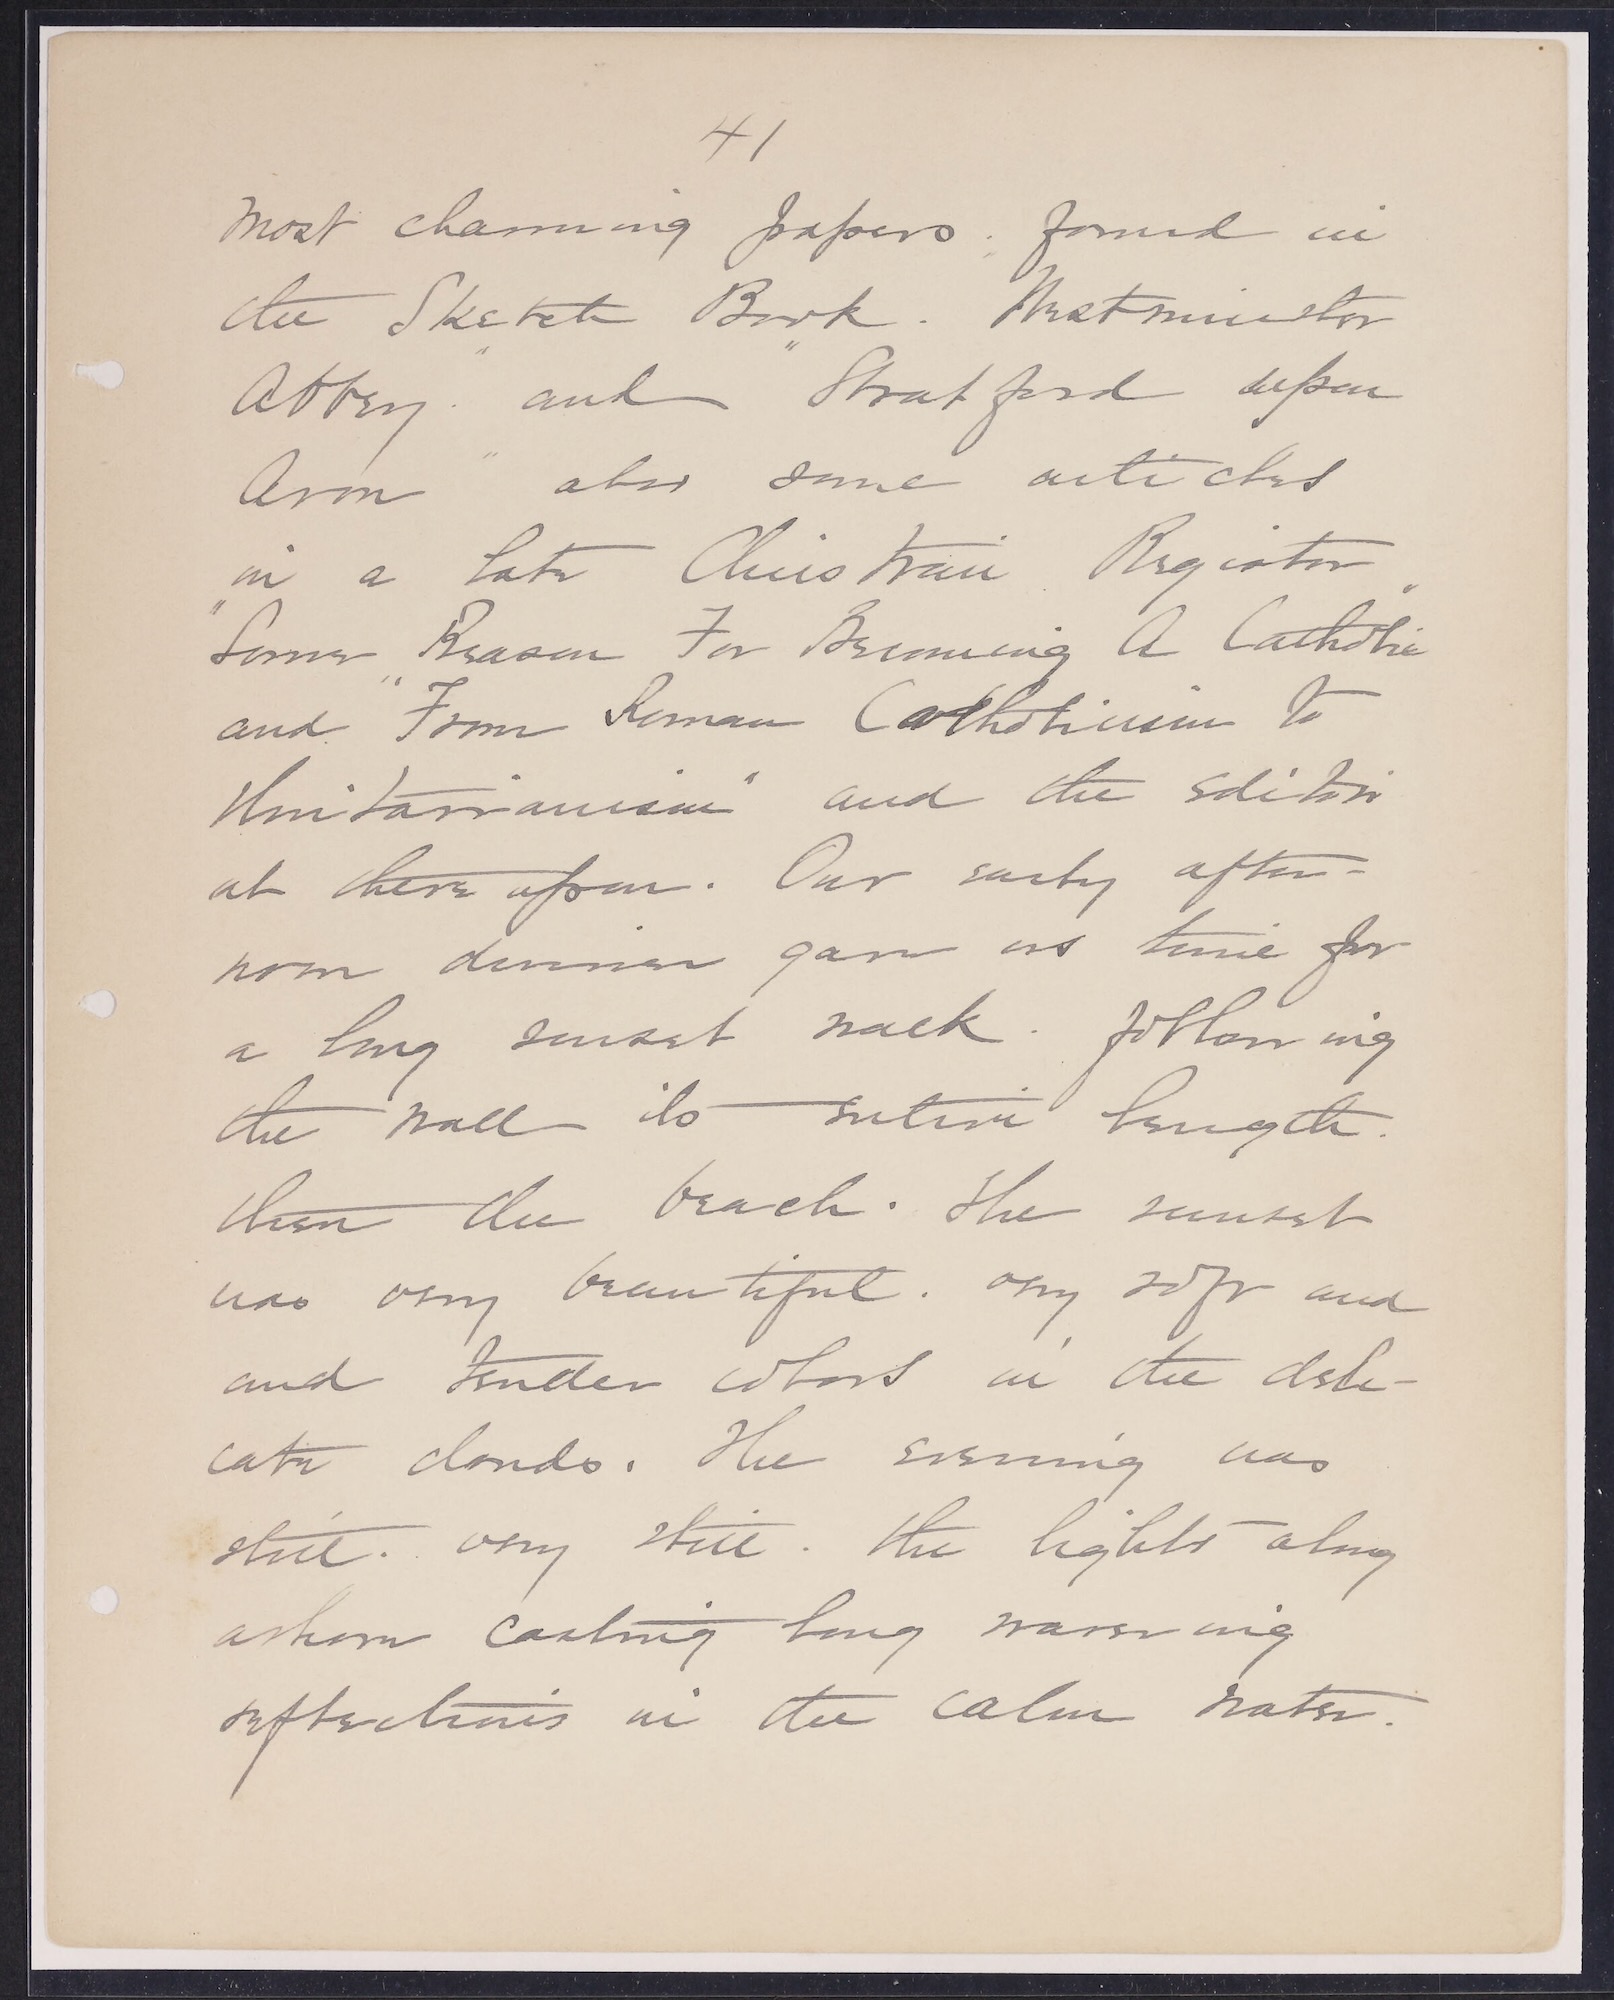 41
most charming papers. found in
the Sketch Book. "Westminster
Abbey." and "Stratford upon
Avon" also some articles
in a late Christian Register
"Some Reason For Becoming A Catholic"
and "From Roman Catholicism to
Unitarianism" and the editori
al there upon. Our early after-
noon dinner gave us time for
a long sunset walk. following
the wall its entire length.
then the beach. The sunset
was very beautiful. very soft and
and tender colors in the deli-
cate clouds. The evening was
still. very still. the lights along
ashore casting long wavering
reflections in the calm water.